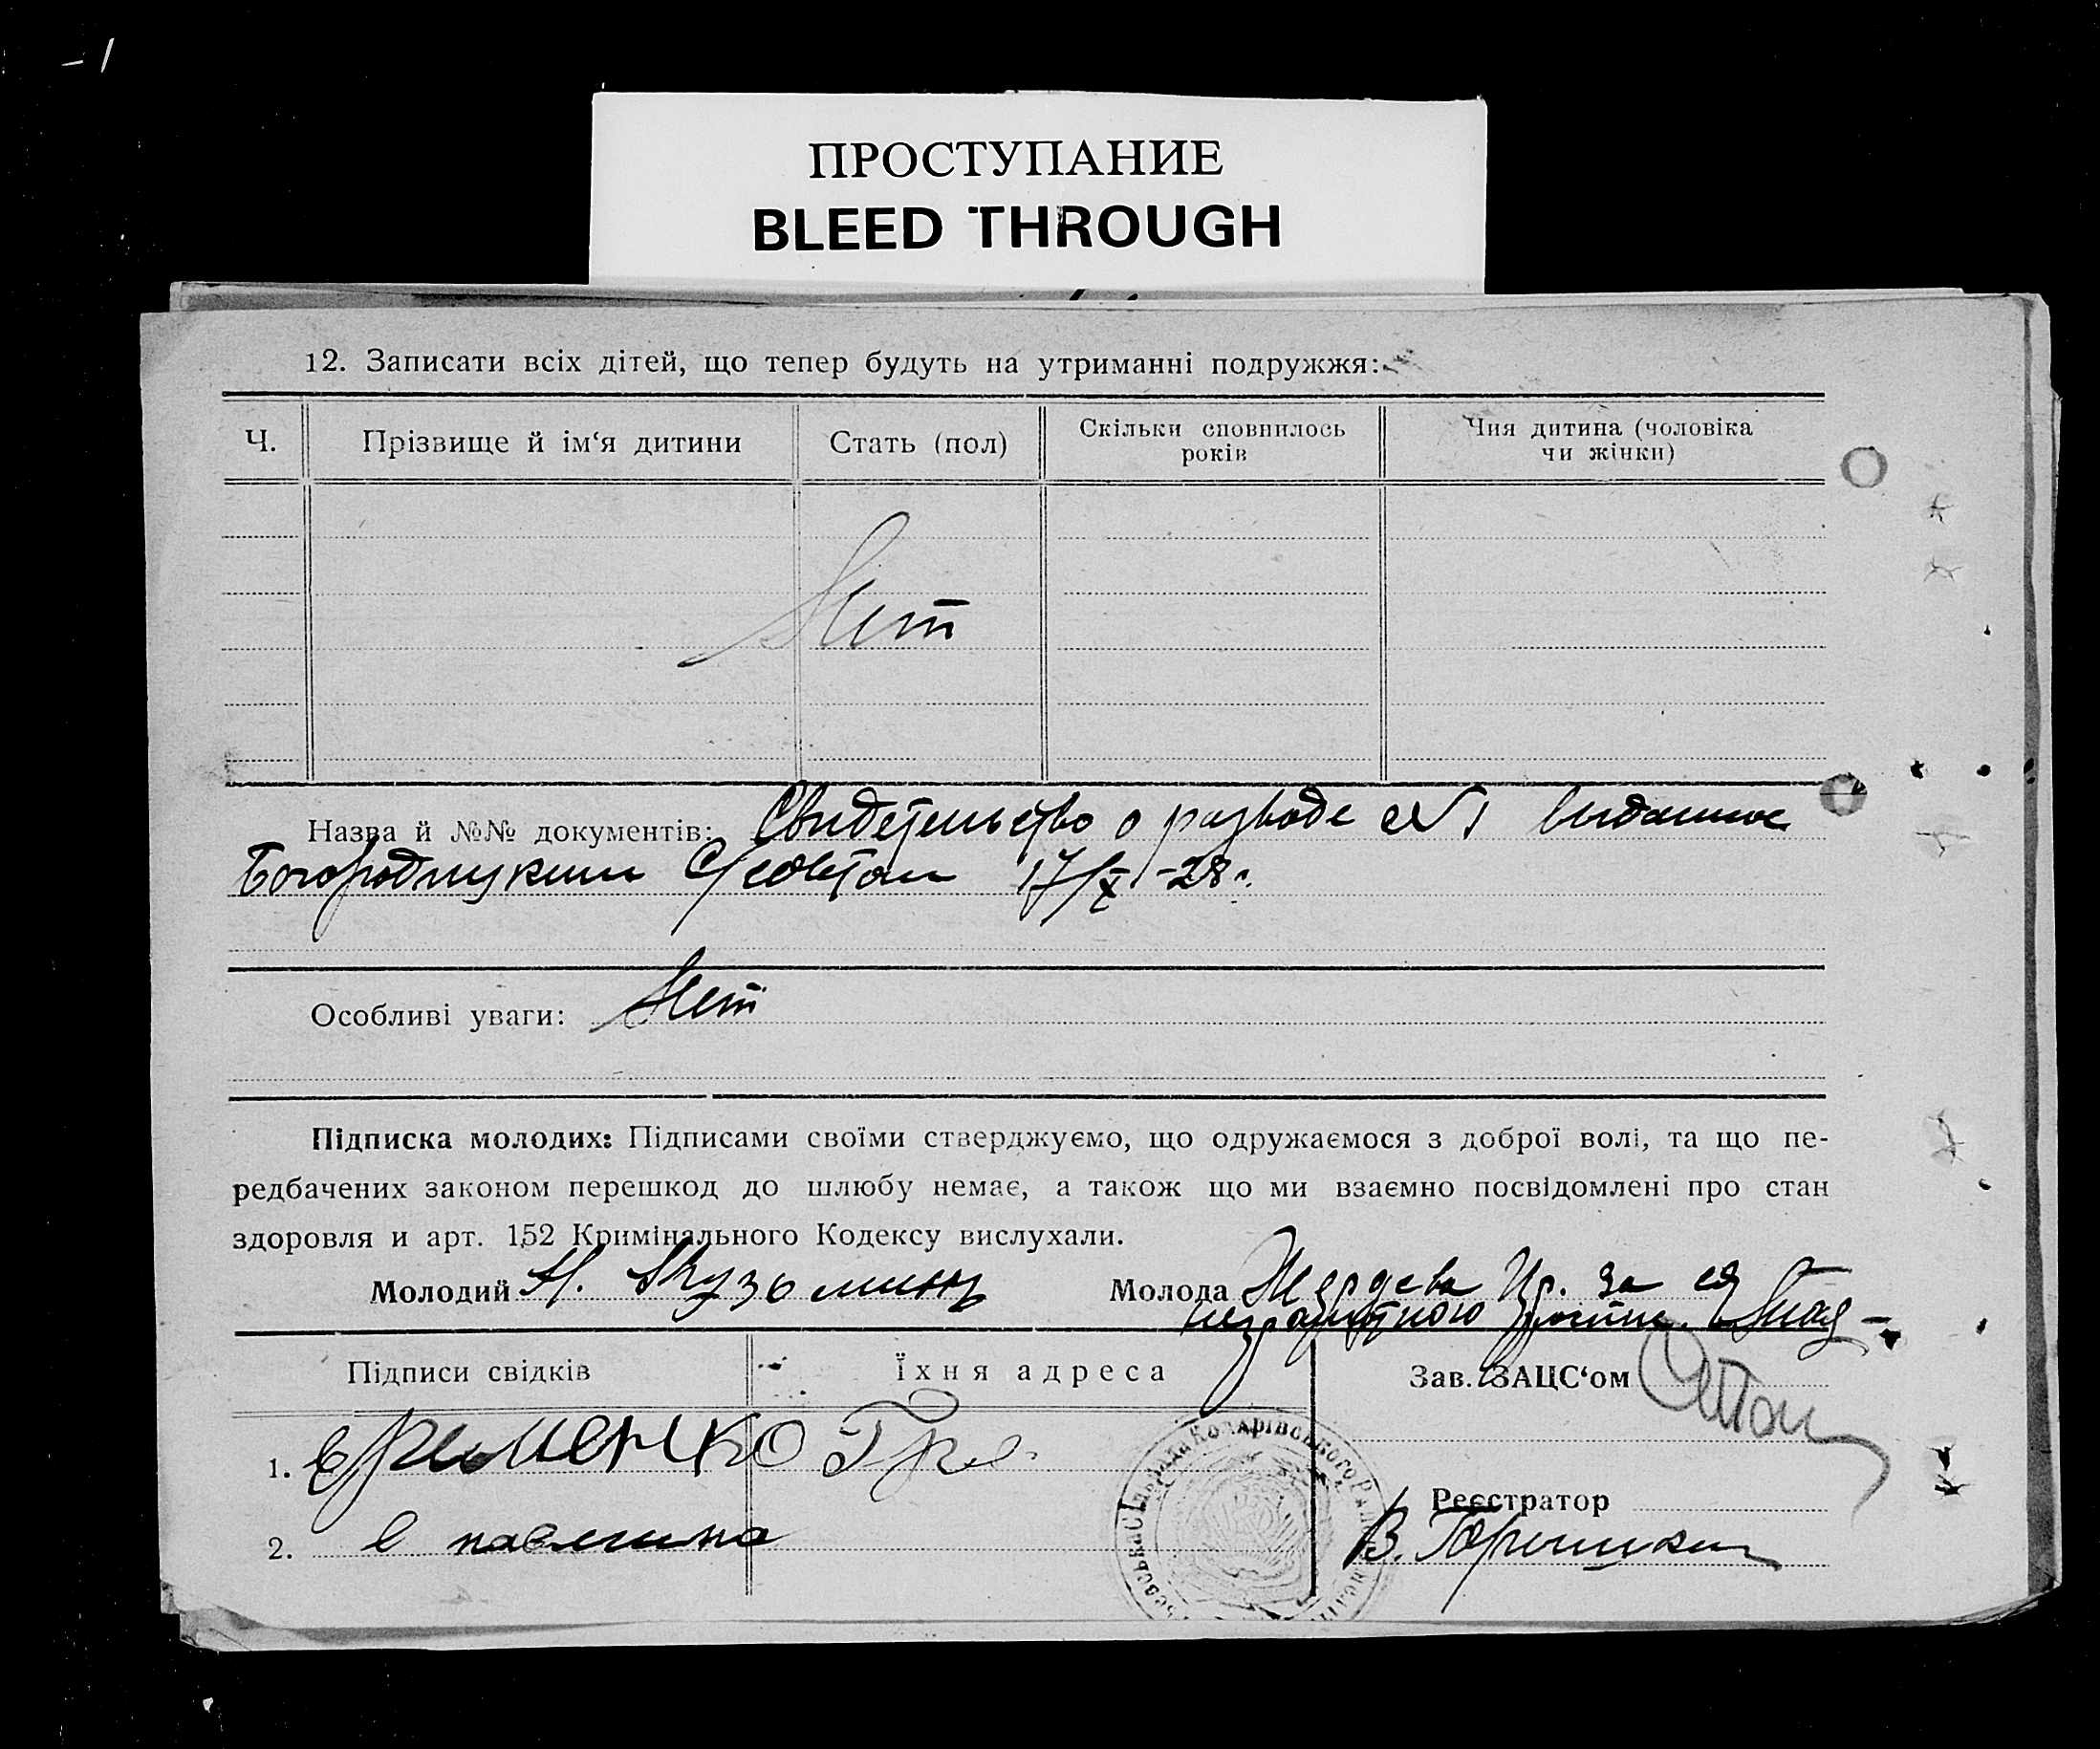 – 1
ПРОСТУПАНИЕ
BLEED THROUGH
12. Записати всіх дітей, що тепер будуть на утриманні подружжя:
Ч. Прізвище й ім‘я дитини Стать (пол) Скільки сповнилось років Чия дитина (чоловіка чи жінки)
Нет
Назва й №№ документів: Свидетельство о разводе №1 выданное
Сельсоветом 17/X-28 г.
Особливі уваги: Нет
Підписка молодих: Підписами своїми стверджуємо, що одружаємося з доброї волі, та що пе-
редбачених законом перешкод до шлюбу немає, а також що ми взаємно посвідомлені про стан
здоровля и арт. 152 Кримінального Кодексу вислухали.
Молодий Н. Кузьминц Молода Ир. за ея
неграмотною
Підписи свідків Їхня адреса Зав. ЗАЦС‘ом
1. Еременко Гри
Реєстратор
2. В.